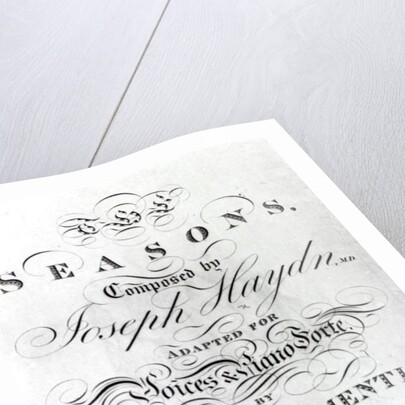 THE
SEASONS,
Composed by
Joseph Haydn, M.D.
ADAPTED FOR
Voices & Piano Forte,
BY
MENTI